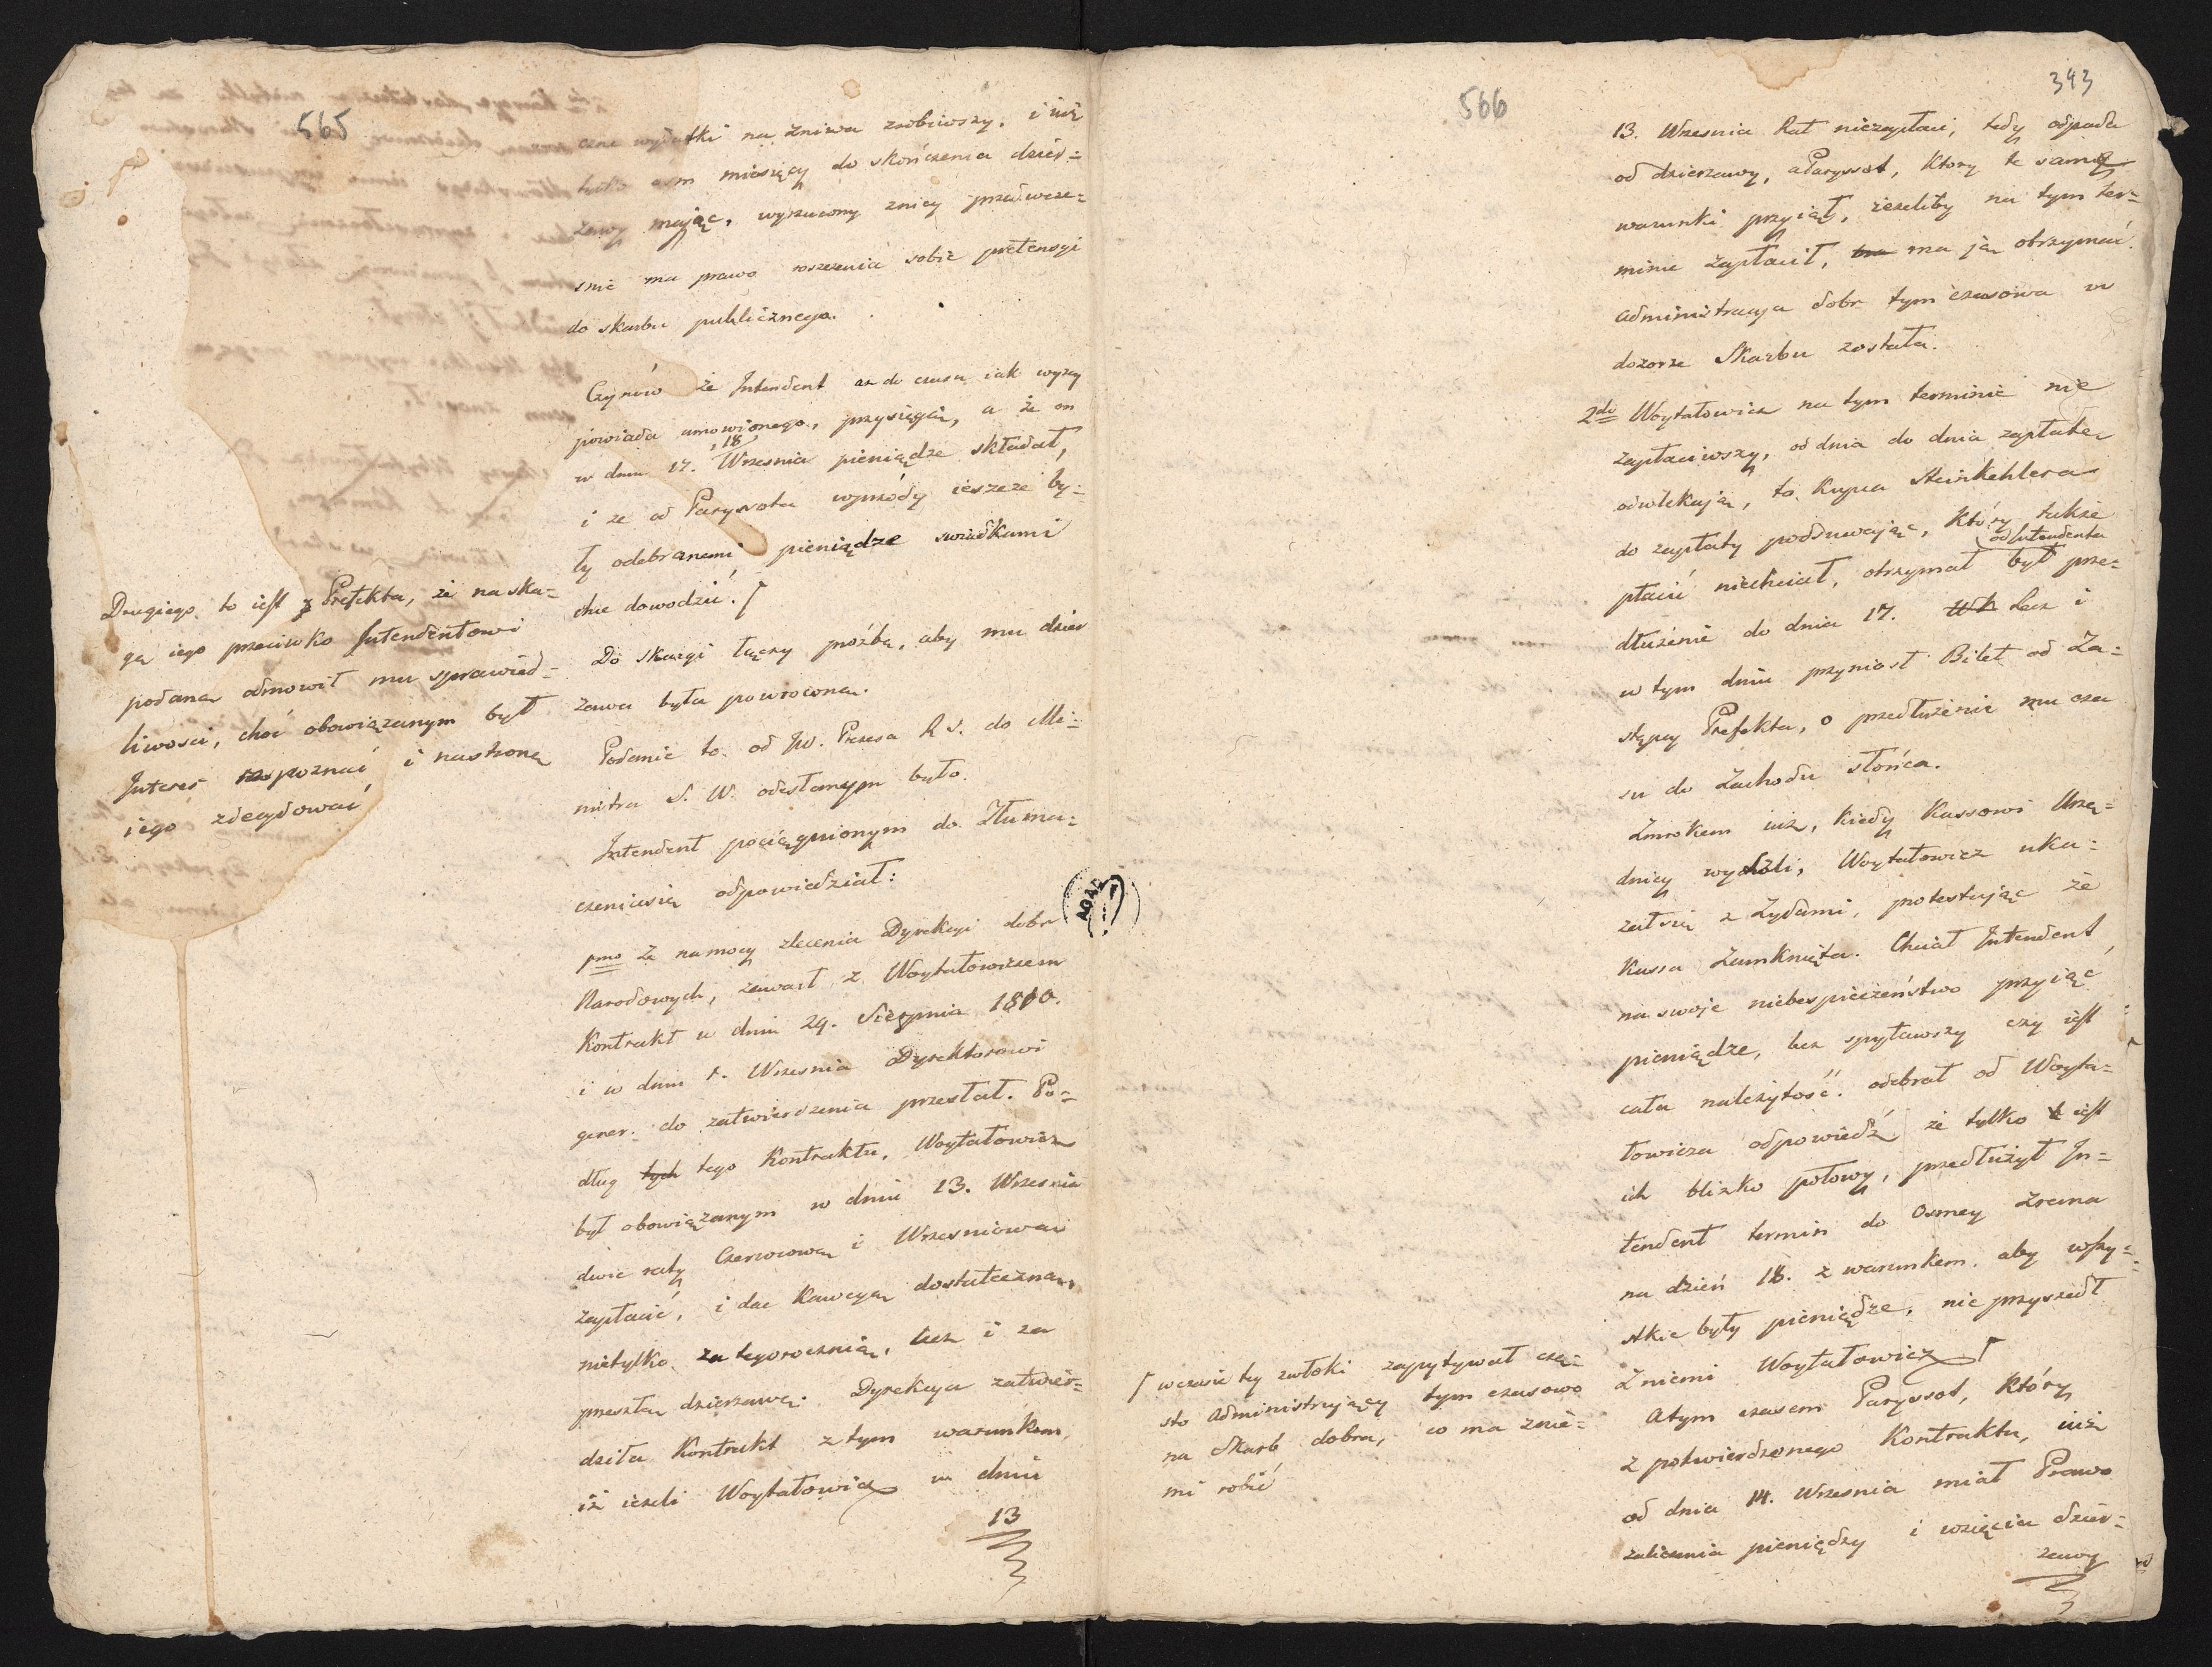 565
czne wydatki na żniwa zrobiwszy, i iuż
tylko osm miesięcy do skończenia dzier=
żawy mając, wyrzucony zniey przedwcze=
snie ma prawo roszczenia sobie pretensyi
do skarbu publicznego.
Czynów że Intendent aż do czasu iak wyżey
powiada umowionego, przysięgać, a że on
w dniu 17. 18 Wrzesnia pieniądze składał,
i że od Paryssota wprzódy ieszcze by=
ły odebranemi pieniądze swiadkami
chce dowodzić. ſ
Drugiego to iest z Prefekta, że na skar=
gę iego przeciwko Intendentowi
podaną odmowił mu sprawied=
liwosci, choć obowiązanym był
Interes rozpoznać i na stronę
iego zdecydować
Do skargi łączy proźbę, aby mu dzier
żawa była powrocona.
Podanie to od JW. Prezesa R. S. do Mi=
nistra S. W. odesłanym było.
Intendent pociągnionym do Tłuma=
czeniasię odpowiedział:
pmo Że namocy zlecenia Dyrekcyi dobr
Narodowych, zawarł z Woytałowiczem
Kontrakt w dniu 29. Sierpnia 1810.
i w dniu 1. Wrzesnia Dyrektorowi
gener. do zatwierdzenia przesłał. Po=
dług tych tego Kontraktu, Woytałowicz
był obowiązanym w dniu 13. Wrzesnia
dwie raty Czerwcową i Wrzesniową
zapłacić, i dac Kaucyą dostateczną,
nietylko za tegoroczną, lecz i za
przeszłą dzierzawę. Dyrekcya zatwier=
dziła Kontrakt z tym warunkiem,
iż ieżeli Woytałowicz w dniu
13
566
343
13. Wrzesnia Rat niezapłaci, tedy odpada
od dzierzawy, a Paryssot, ktory te samę
warunki przyiął, ieżeliby na tym ter=
minie zapłacił, ma ją otrzymać.
Administracya dobr tymczasowa w
dozorze Skarbu została.
2do Woytałowicz na tym terminie nie
zapłaciwszy, od dnia do dnia zapłatę
odwlekaią, to Kupca Steinkehlera
do zapłaty podsuwaiąc, który także
płacić niechciał, otrzymał od Intendenta był prze=
dłużenie do dnia 17. Lecz i
w tym dniu przyniosł Bilet od Za=
stępcy Prefekta, o przedłużenie mu cza
su do Zachodu słońca.
Zmrokiem iuż, kiedy Kassowi Urzę=
dnicy wyszli, Woytałowicz uka=
załsię z Zydami, protestując że
Kassa Zamknięta. Chciał Intendent
na swoje niebespieczeństwo przyiąć
pieniądze, lecz spytawszy czy iest
cała należytość. odebrał od Woyta=
łowicza odpowiedź że tylko iest
ich blizko połowy, przedłużył In=
tendent termin do Osmey Zrana
na dzień 18. z warunkiem, aby wszy=
stkie były pieniądze, nie przyszedł
Zniemi Woytałowicz ſ
ſ w czasie tey zwłoki zapytywał czę=
sto Administruiący tym czasowo
na Skarb dobra, co ma znie=
mi robić
A tym czasem Paryssot, który
z potwierdzonego Kontraktu, iuż
od dnia 14. Wrzesnia miał Prawo
zaliczenia pieniędzy i wzięcia dzier=
zawy
AGAD